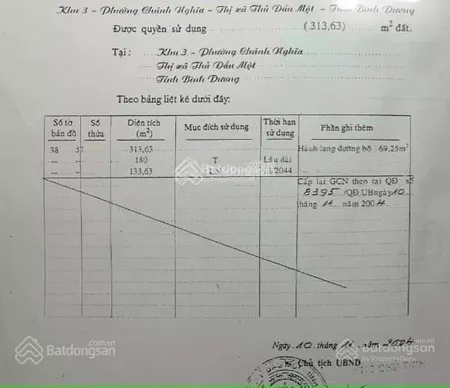 Khu 3 - Phường Chánh Nghĩa - Thị xã Thủ Dầu Một - Tỉnh Bình Dương
Được quyền sử dụng (313,63) m² đất.
Tại : Khu 3 - Phường Chánh Nghĩa
Thị xã Thủ Dầu Một
Tỉnh Bình Dương
Theo bảng liệt kê dưới đây:
Số tờ bản đồ Số thửa Diện tích (m²) Mục đích sử dụng Thời hạn sử dụng Phần ghi thêm
38 57 313,63 Hành lang đường bộ : 69,25m²
-- -- 180 T Lâu dài
-- -- 133,63 2044
Cấp lại GCN theo tại QĐ số
8395 /QĐ.UB ngày 10
tháng 11 năm 2004
Batdongsan.com.vn
by PropertyGuru
Ngày 10 tháng 11 năm 2004
Chủ tịch UBND
Batdongsan.com.vn
by PropertyGuru
Batdongsan.com.vn
by PropertyGuru